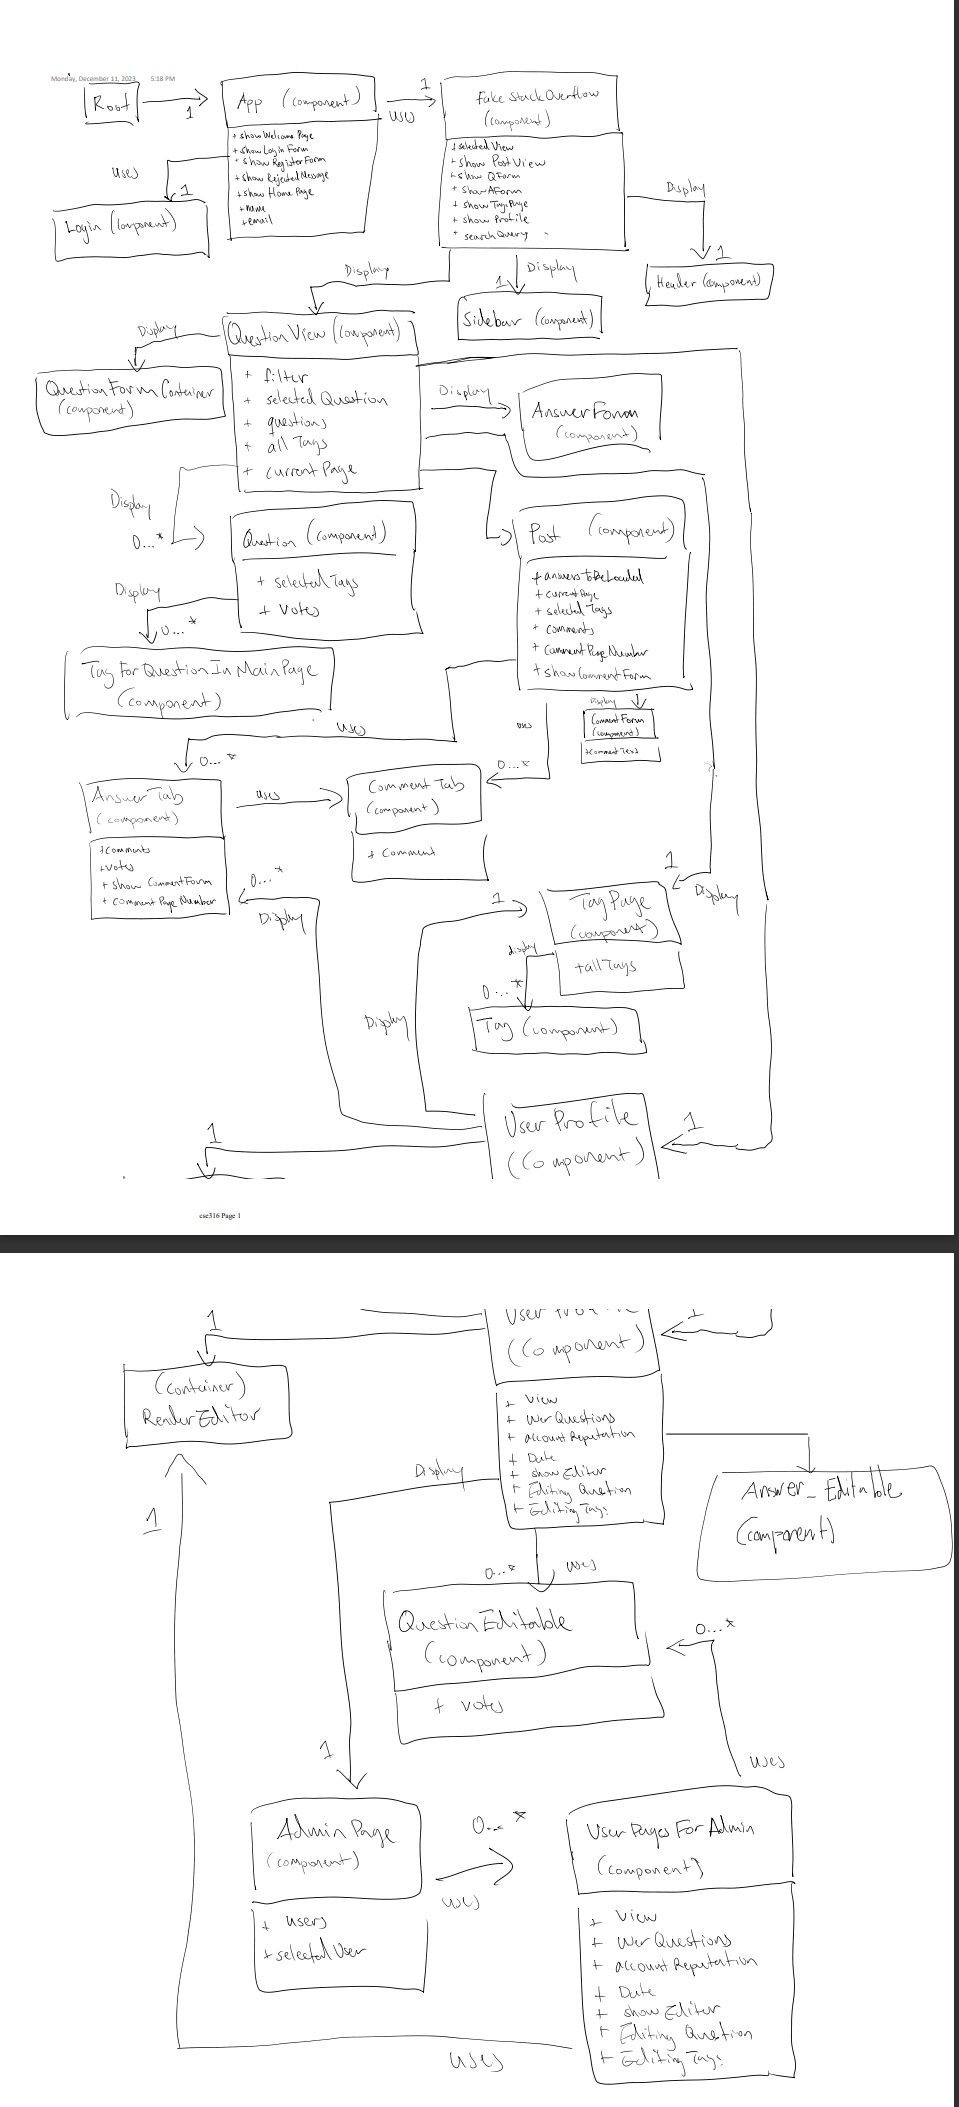 Monday, December 11, 2023 5:18 PM
Root
1
App (component)
+ show Welcome Page
+ show Login Form
+ show Register Form
+ show Rejected Message
+ show Home Page
+ name
+ email
uses
1
Login (component)
use
1
Fake Stack Overflow
(component)
+ selected View
+ show Post View
+ show QForm
+ show AForm
+ show Tags Page
+ show Profile
+ search Query
Display
1
Header (component)
Display
1
Sidebar (component)
Display
Question View (component)
+ filter
+ selected Question
+ questions
+ all Tags
+ current Page
Display
Question Form Container
(component)
Display
Answer Form
(component)
Display
0...*
Question (component)
+ selected Tags
+ Votes
Display
0...*
Tag For Question In Main Page
(component)
Post (component)
+ answers To Be Loaded
+ current Page
+ selected Tags
+ comments
+ Comment Page Number
+ show Comment Form
Display
Comment Form
(component)
+ Comment Text
uses
0...*
uses
0...*
Answer Tab
(component)
+ Comments
+ Votes
+ show Comment Form
+ Comment Page Number
uses
Comment Tab
(component)
+ Comment
0...*
Display
1
Display
1
Tag Page
(component)
+ all Tags
display
0...*
Tag (component)
Display
1
User Profile
(Component)
1
cse316 Page 1
1
User Profile
(Component)
1
(Container)
Render Editor
+ View
+ User Questions
+ account Reputation
+ Date
+ show Editor
+ Editing Question
+ Editing Tags
Display
1
Answer_Editable
(component)
0...*
uses
Question Editable
(component)
+ votes
0...*
uses
1
Admin Page
(component)
+ users
+ selected User
0...*
uses
User Pages For Admin
(component)
+ View
+ User Questions
+ account Reputation
+ Date
+ show Editor
+ Editing Question
+ Editing Tags
uses